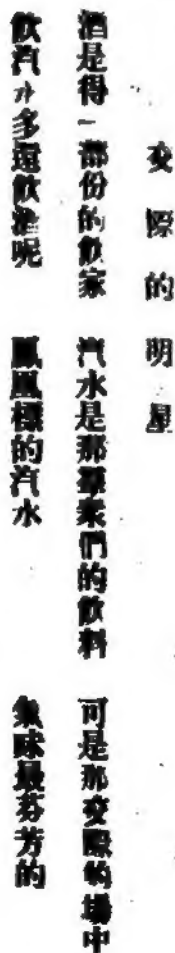 交際的明星
酒是得一部份的飲家　汽水是那群衆們的飲料　可是那交際的場中
飲汽水多還飲酒呢　鳳凰標的汽水　氣味最芬芳的